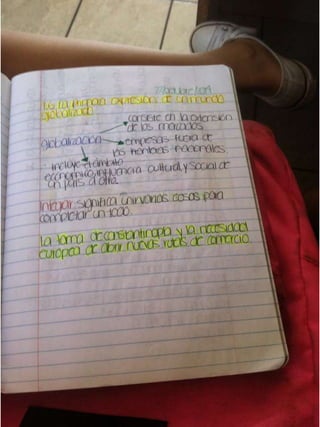 7/octubre/2019
Es la primera expresión de un mundo
globalizado
consiste en la extensión
de los mercados
globalización
empresas fuera de
las fronteras nacionales.
incluye el ámbito
economico, influencia cultural y social de
un país a otro.
Integrar: significa unir varias cosas para
completar un todo.
La toma de constantinopla y la necesidad
europea de abrir nuevas rutas de comercio